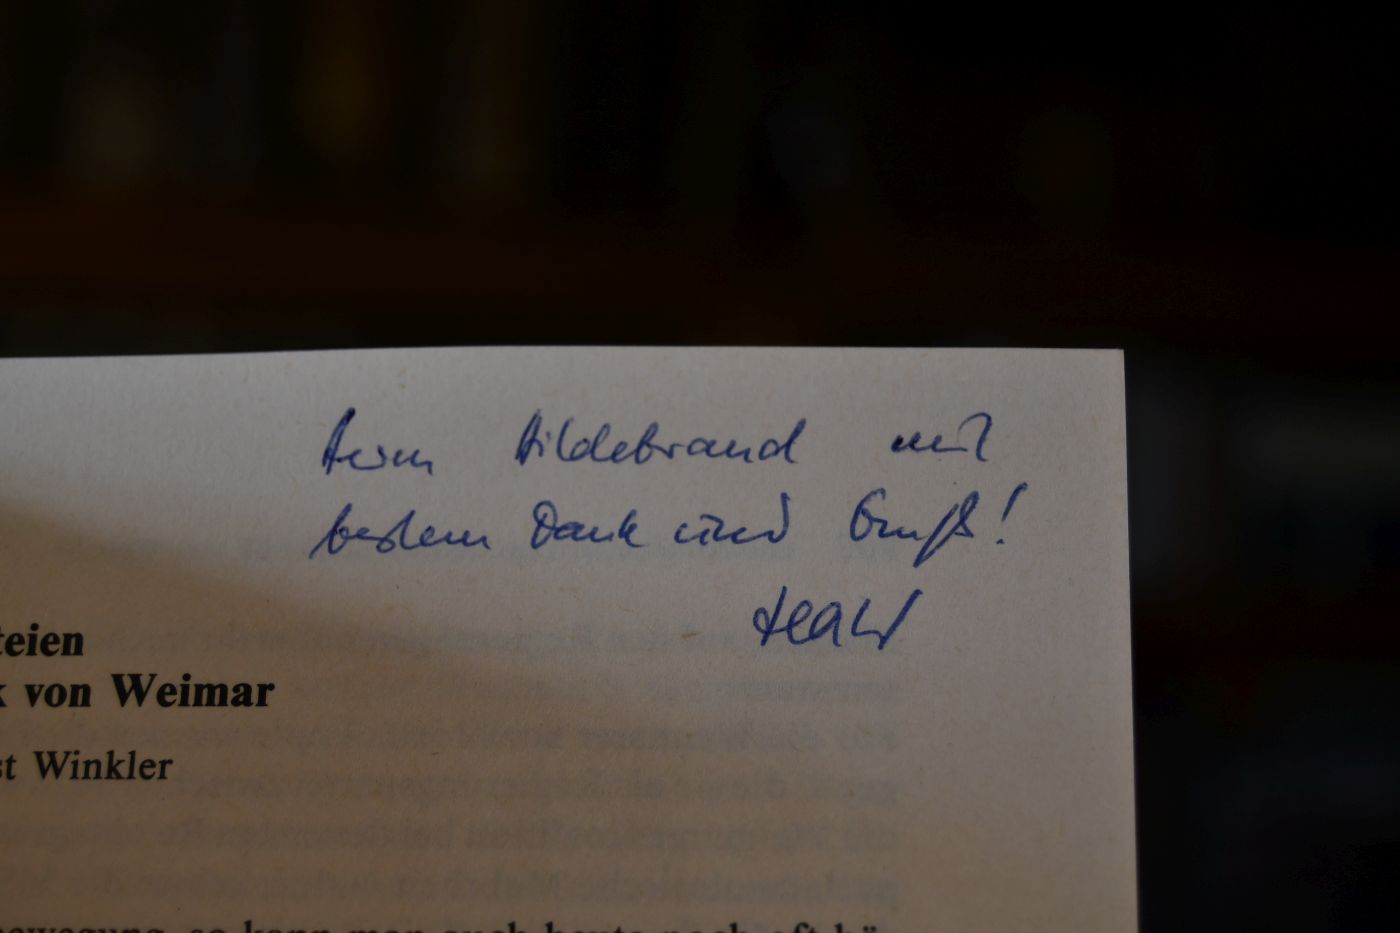 Herrn Hildebrand mit
bestem Dank und Gruß!
HAW
teien
k von Weimar
st Winkler
bewegung, so kann man auch heute noch oft hö-